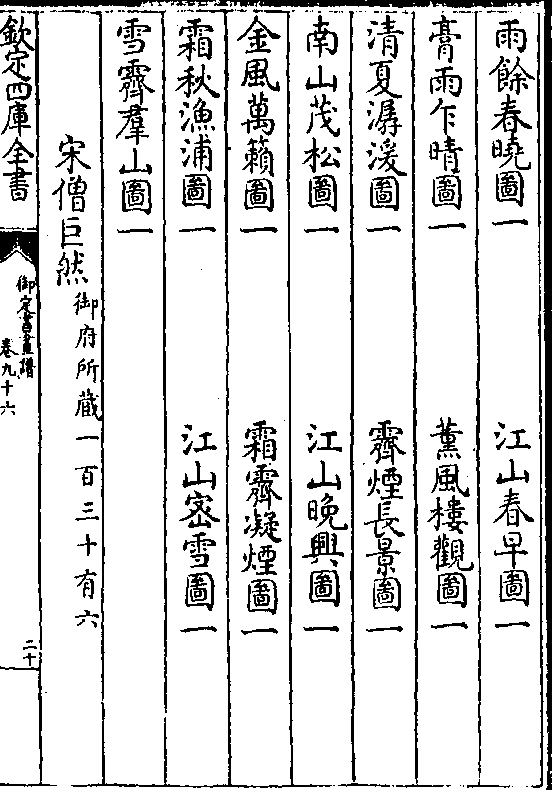 雨餘春曉圖一　江山春早圖一
膏雨乍晴圖一　薰風樓觀圖一
清夏潺湲圖一　霽煙長景圖一
南山茂松圖一　江山晚興圖一
金風萬籟圖一　霜霽凝煙圖一
霜秋漁浦圖一　江山密雪圖一
雪霽羣山圖一
宋僧巨然御府所藏一百三十有六
欽定四庫全書　御定書畫譜　卷九十六　二十